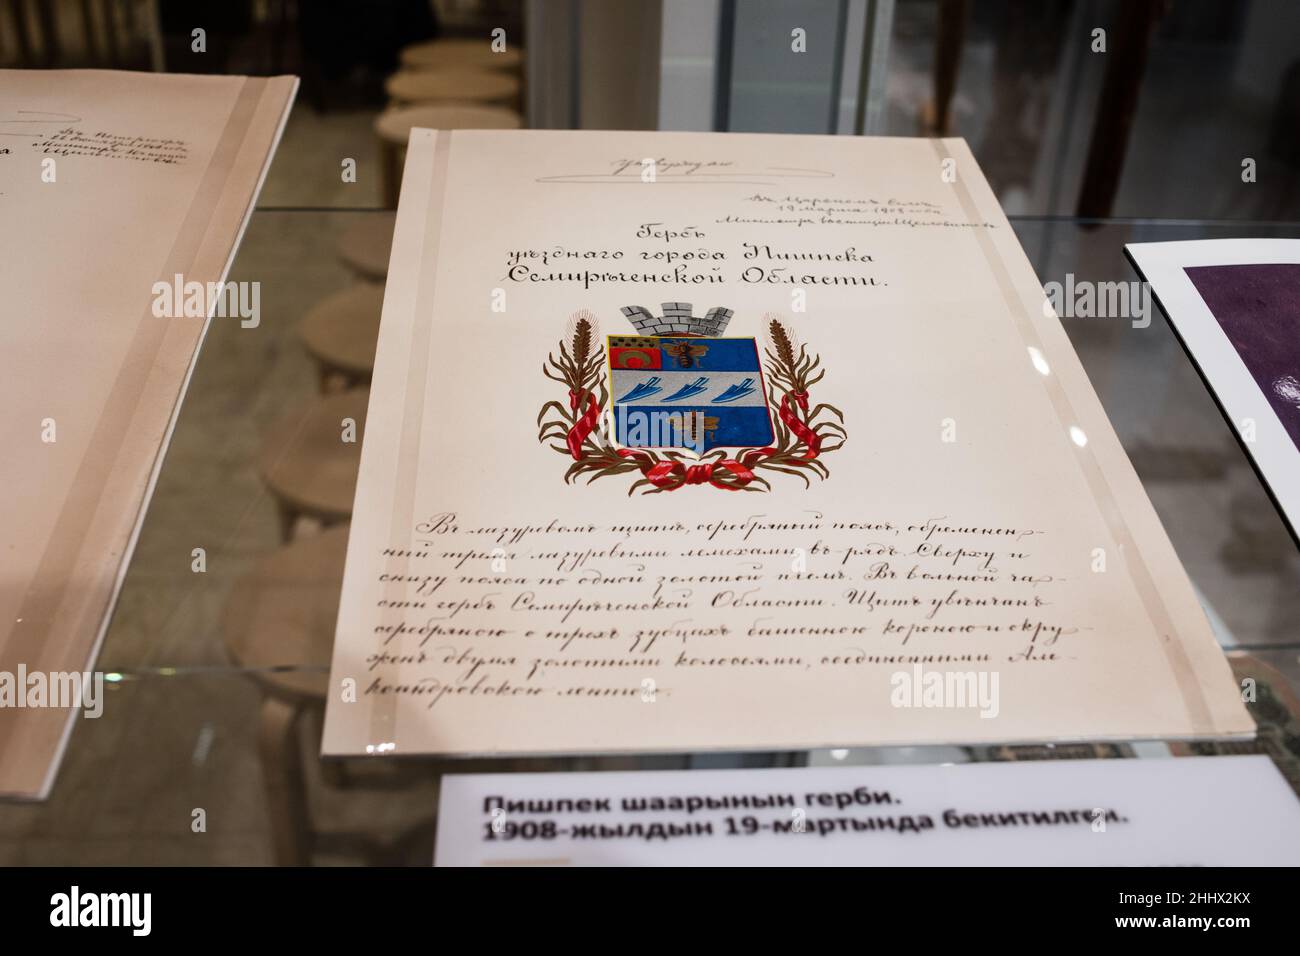 Утверждаю.
Въ Царскомъ Селѣ
19 Марта 1908 года
Министръ Юстиціи Щегловитовъ
Гербъ
уѣзднаго города Пишпека
Семирѣченской Области.
Въ лазуревомъ щитѣ, серебряный поясъ, обременен-
ный тремя лазуревыми лемехами въ рядъ. Сверху и
снизу пояса по одной золотой пчелѣ. Въ вольной ча-
сти гербъ Семирѣченской Области. Щитъ увѣнчанъ
серебряною о трехъ зубцахъ башенною короною и окру-
женъ двумя золотыми колосьями, соединенными Але-
ксандровскою лентою.
Пишпек шаарынын герби.
1908-жылдын 19-мартында бекитилген.
alamy
Image ID: 2HHX2KX
www.alamy.com